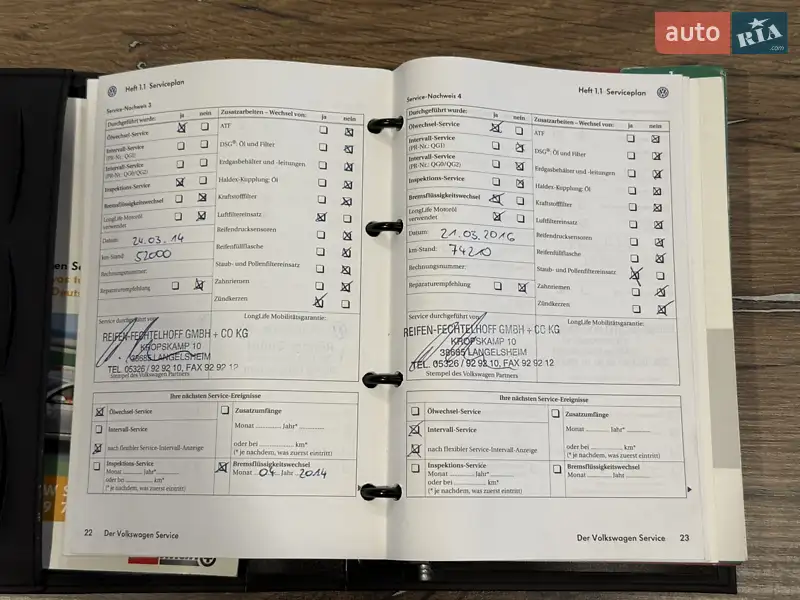 auto RIA .com
Heft 1.1 Serviceplan
Service-Nachweis 3
Durchgeführt wurde: ja nein
Ölwechsel-Service
Intervall-Service
(PR-Nr.: QG1)
Intervall-Service
(PR-Nr.: QG0/QG2)
Inspektions-Service
Bremsflüssigkeitswechsel
LongLife Motoröl
verwendet
Datum: 24.03.14
km-Stand: 52000
Rechnungsnummer:
Reparaturempfehlung
Zusatzarbeiten – Wechsel von: ja nein
ATF
DSG®: Öl und Filter
Erdgasbehälter und -leitungen
Haldex-Kupplung: Öl
Kraftstofffilter
Luftfiltereinsatz
Reifendrucksensoren
Reifenfüllflasche
Staub- und Pollenfiltereinsatz
Zahnriemen
Zündkerzen
Service durchgeführt von:
LongLife Mobilitätsgarantie:
REIFEN-FECHTELHOFF GMBH + CO KG
KROPSKAMP 10
38685 LANGELSHEIM
TEL. 05326 / 92 92 10, FAX 92 92 12
Stempel des Volkswagen Partners
Ihre nächsten Service-Ereignisse
Ölwechsel-Service
Intervall-Service
nach flexibler Service-Intervall-Anzeige
Inspektions-Service
Monat Jahr*
oder bei km*
(* je nachdem, was zuerst eintritt)
Zusatzumfänge
Monat Jahr*
oder bei km*
(* je nachdem, was zuerst eintritt)
Bremsflüssigkeitswechsel
Monat 04 Jahr 2014
22 Der Volkswagen Service
Heft 1.1 Serviceplan
Service-Nachweis 4
Durchgeführt wurde: ja nein
Ölwechsel-Service
Intervall-Service
(PR-Nr.: QG1)
Intervall-Service
(PR-Nr.: QG0/QG2)
Inspektions-Service
Bremsflüssigkeitswechsel
LongLife Motoröl
verwendet
Datum: 21.03.2016
km-Stand: 74210
Rechnungsnummer:
Reparaturempfehlung
Zusatzarbeiten – Wechsel von: ja nein
ATF
DSG®: Öl und Filter
Erdgasbehälter und -leitungen
Haldex-Kupplung: Öl
Kraftstofffilter
Luftfiltereinsatz
Reifendrucksensoren
Reifenfüllflasche
Staub- und Pollenfiltereinsatz
Zahnriemen
Zündkerzen
Service durchgeführt von:
LongLife Mobilitätsgarantie:
REIFEN-FECHTELHOFF GMBH + CO KG
KROPSKAMP 10
38685 LANGELSHEIM
TEL. 05326 / 92 92 10, FAX 92 92 12
Stempel des Volkswagen Partners
Ihre nächsten Service-Ereignisse
Ölwechsel-Service
Intervall-Service
nach flexibler Service-Intervall-Anzeige
Inspektions-Service
Monat Jahr*
oder bei km*
(* je nachdem, was zuerst eintritt)
Zusatzumfänge
Monat Jahr*
oder bei km*
(* je nachdem, was zuerst eintritt)
Bremsflüssigkeitswechsel
Monat Jahr
Der Volkswagen Service 23